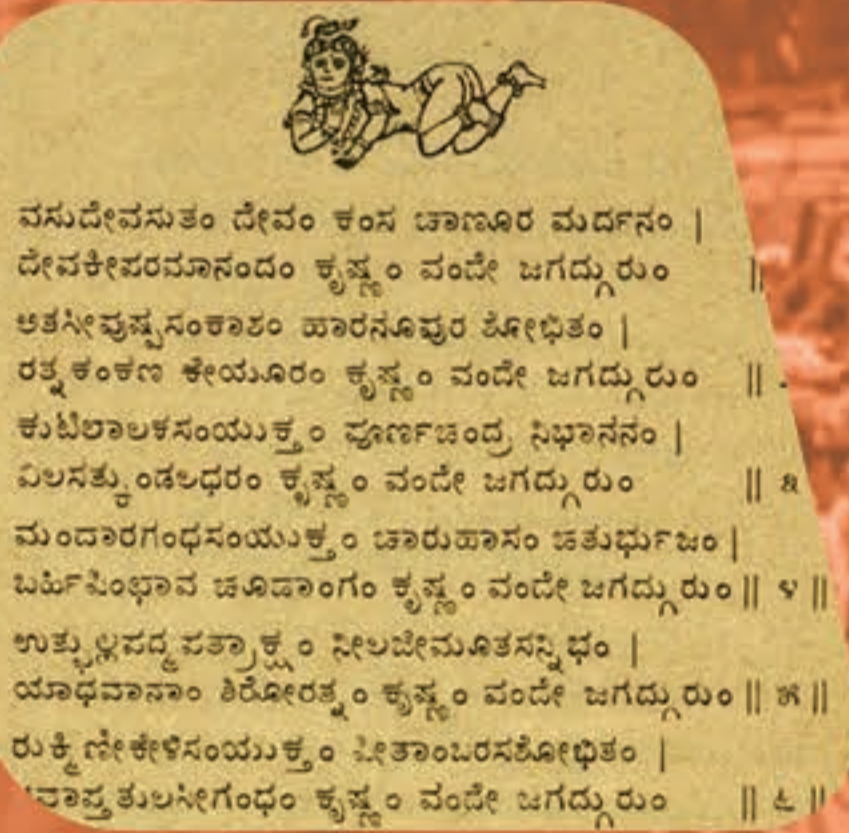 ವಸುದೇವಸುತಂ ದೇವಂ ಕಂಸ ಚಾಣೂರ ಮರ್ದನಂ |
ದೇವಕೀಪರಮಾನಂದಂ ಕೃಷ್ಣಂ ವಂದೇ ಜಗದ್ಗುರುಂ ||
ಅತಸೀಪುಷ್ಪಸಂಕಾಶಂ ಹಾರನೂಪುರ ಶೋಭಿತಂ |
ರತ್ನಕಂಕಣ ಕೇಯೂರಂ ಕೃಷ್ಣಂ ವಂದೇ ಜಗದ್ಗುರುಂ ||
ಕುಟಿಲಾಲಕಸಂಯುಕ್ತಂ ಪೂರ್ಣಚಂದ್ರ ನಿಭಾನನಂ |
ವಿಲಸತ್ಕುಂಡಲಧರಂ ಕೃಷ್ಣಂ ವಂದೇ ಜಗದ್ಗುರುಂ || ೩
ಮಂದಾರಗಂಧಸಂಯುಕ್ತಂ ಚಾರುಹಾಸಂ ಚತುರ್ಭುಜಂ |
ಬರ್ಹಿಪಿಂಛಾವ ಚೂಡಾಂಗಂ ಕೃಷ್ಣಂ ವಂದೇ ಜಗದ್ಗುರುಂ || ೪ ||
ಉತ್ಫುಲ್ಲಪದ್ಮಪತ್ರಾಕ್ಷಂ ನೀಲಜೀಮೂತಸನ್ನಿಭಂ |
ಯಾಧವಾನಾಂ ಶಿರೋರತ್ನಂ ಕೃಷ್ಣಂ ವಂದೇ ಜಗದ್ಗುರುಂ || ೫ ||
ರುಕ್ಮಿಣೀಕೇಳಿಸಂಯುಕ್ತಂ ಪೀತಾಂಬರಸಶೋಭಿತಂ |
ತುಲಸೀಗಂಧಂ ಕೃಷ್ಣಂ ವಂದೇ ಜಗದ್ಗುರುಂ || ೬ ||